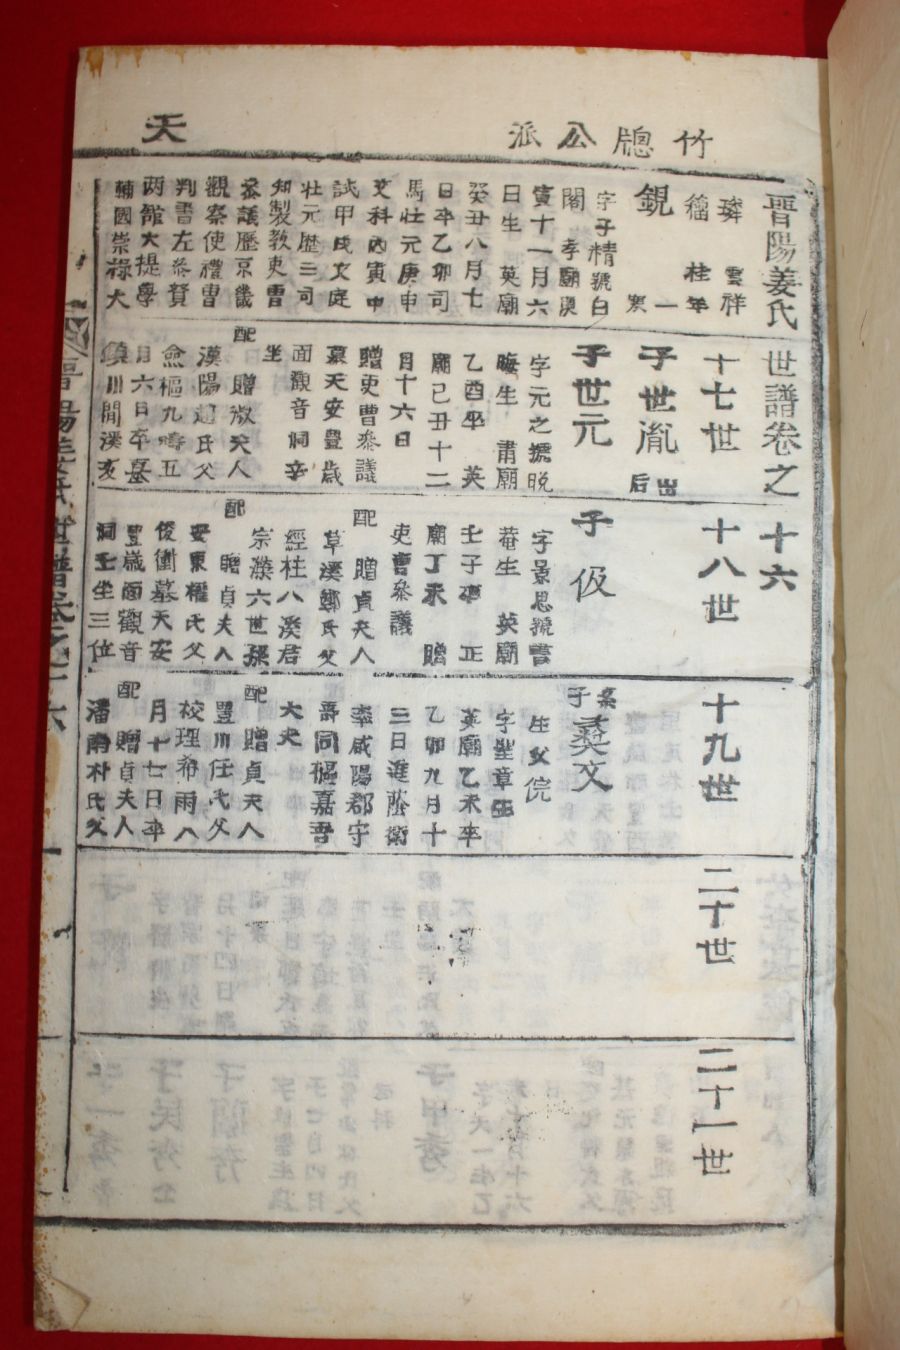 竹牕公派
天
晋陽姜氏世譜卷之十六
璘 雲祥
籀 桂年
十七世
十八世
十九世
二十世
二十一世
鋧 一
寅
字子精號白
閣 孝廟庚
寅十一月六
日生 英廟
癸丑八月七
日卒乙卯司
馬壯元庚申
文科丙寅中
試甲戌文庭
壯元歷三司
知製教吏曹
叅議歷京畿
觀察使禮曹
判書左叅贊
両館大提學
輔國崇祿大
子世胤 出后
子世元
字元之號晩
晦生 肅廟
乙酉卒 英
廟己丑十二
月十六日
贈吏曹叅議
墓天安豊歲
面觀音洞辛
坐
配 贈淑夫人
漢陽趙氏父
僉樞九疇五
月六日卒墓
鎮川聞溪亥
子 伋
字景思號書
菴生 英廟
壬子卒 正
廟丁未 贈
吏曹叅議
配 贈貞夫人
草溪鄭氏父
經柱八溪君
宗濼六世孫
配 贈貞夫人
安東權氏父
俊衡墓天安
豊歲面觀音
洞壬坐三位
系子彛文
生父俒
字聖章 正
英廟乙未卒
乙卯九月十
三日進蔭衛
率咸陽郡守
壽同樞嘉善
大夫
配 贈貞夫人
豐川任氏父
校理希雨八
月十七日卒
配 贈貞夫人
潘南朴氏父
晋陽姜氏世譜卷之十六